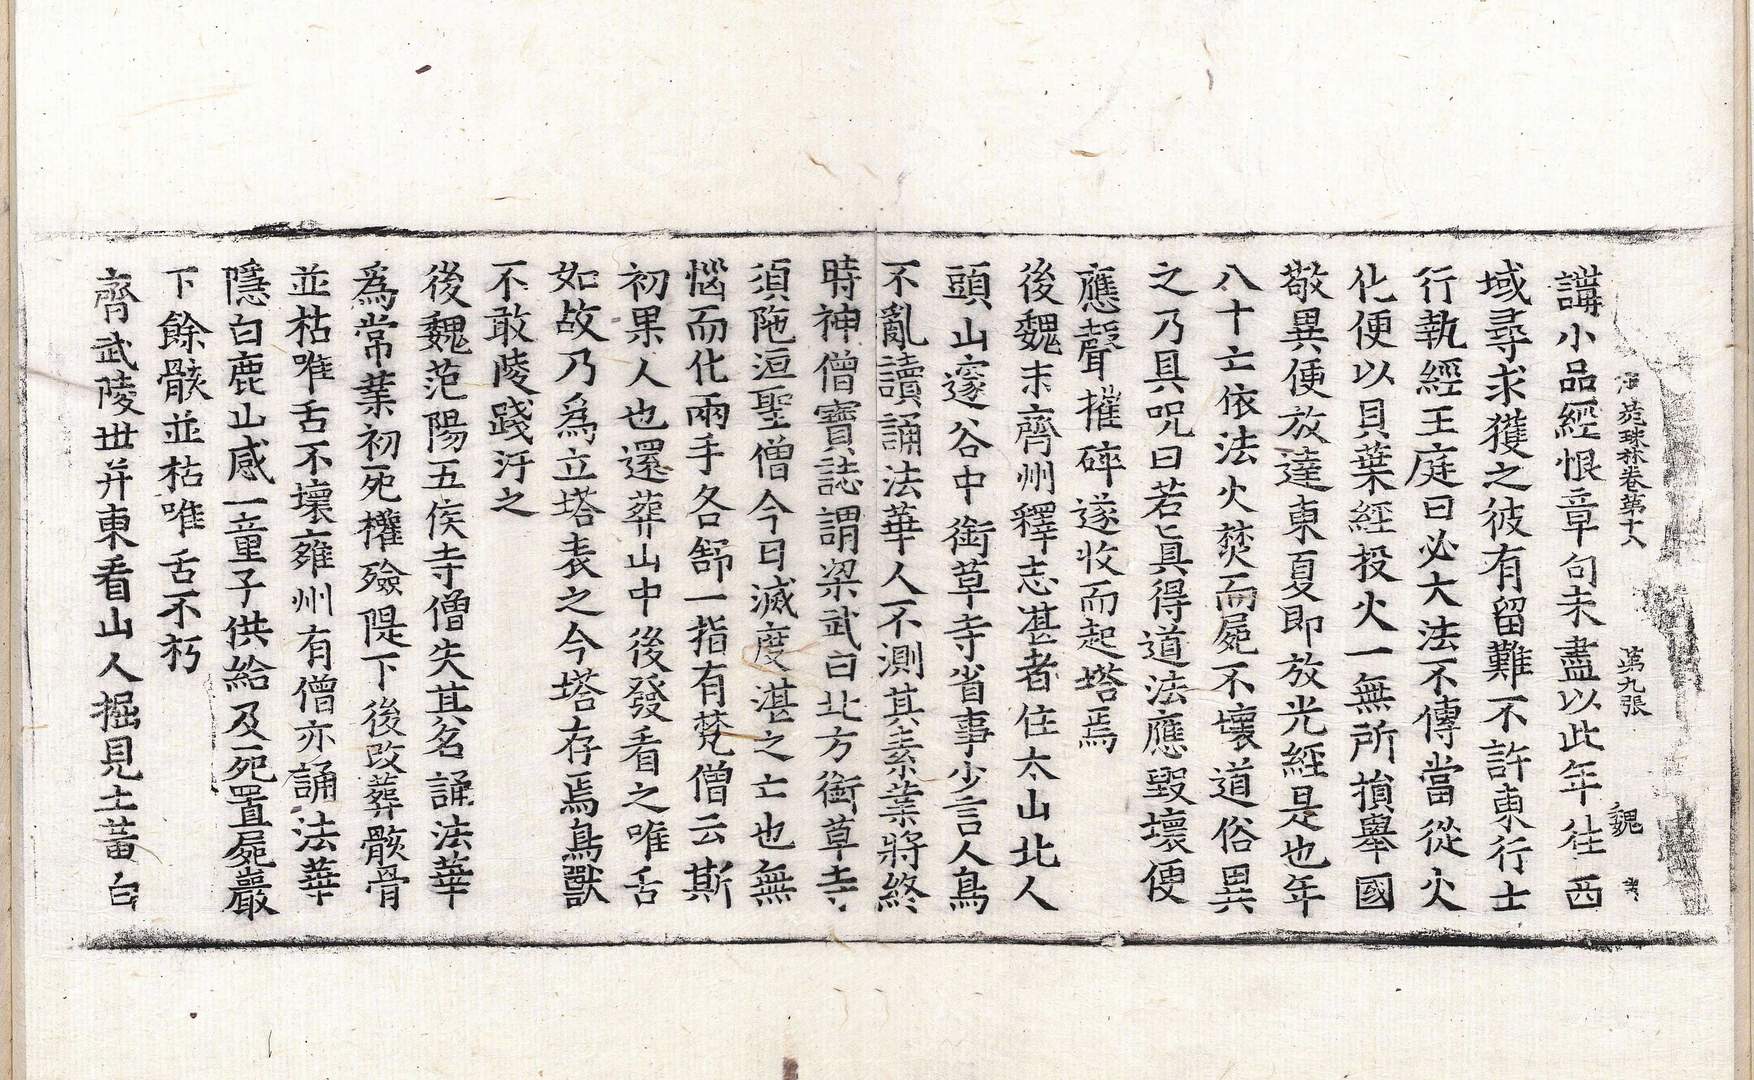 法苑珠林卷第十八 第九張 魏
講小品經恨章句未盡以此年往西
域尋求獲之彼有留難不許東行士
行執經王庭曰必大法不傳當從火
化便以貝葉經投火一無所損舉國
敬異便放達東夏即放光經是也年
八十亡依法火焚而屍不壞道俗異
之乃具呪曰若亡具得道法應毀壞便
應聲摧碎遂收而起塔焉
後魏末齊州釋志湛者住太山北人
頭山邃谷中銜草寺省事少言人鳥
不亂讀誦法華人不測其素業將終
時神僧寶誌謂梁武曰北方銜草寺
須陁洹聖僧今日滅度湛之亡也無
惱而化兩手各舒一指有梵僧云斯
初果人也還葬山中後發看之唯舌
如故乃為立塔表之今塔存焉鳥獸
不敢陵踐汙之
後魏范陽五侯寺僧失其名誦法華
為常業初死權殮隄下後改葬骸骨
並枯唯舌不壞雍州有僧亦誦法華
隱白鹿山感一童子供給及死置屍巖
下餘骸並枯唯舌不朽
齊武陵世并東看山人掘見土蓄白